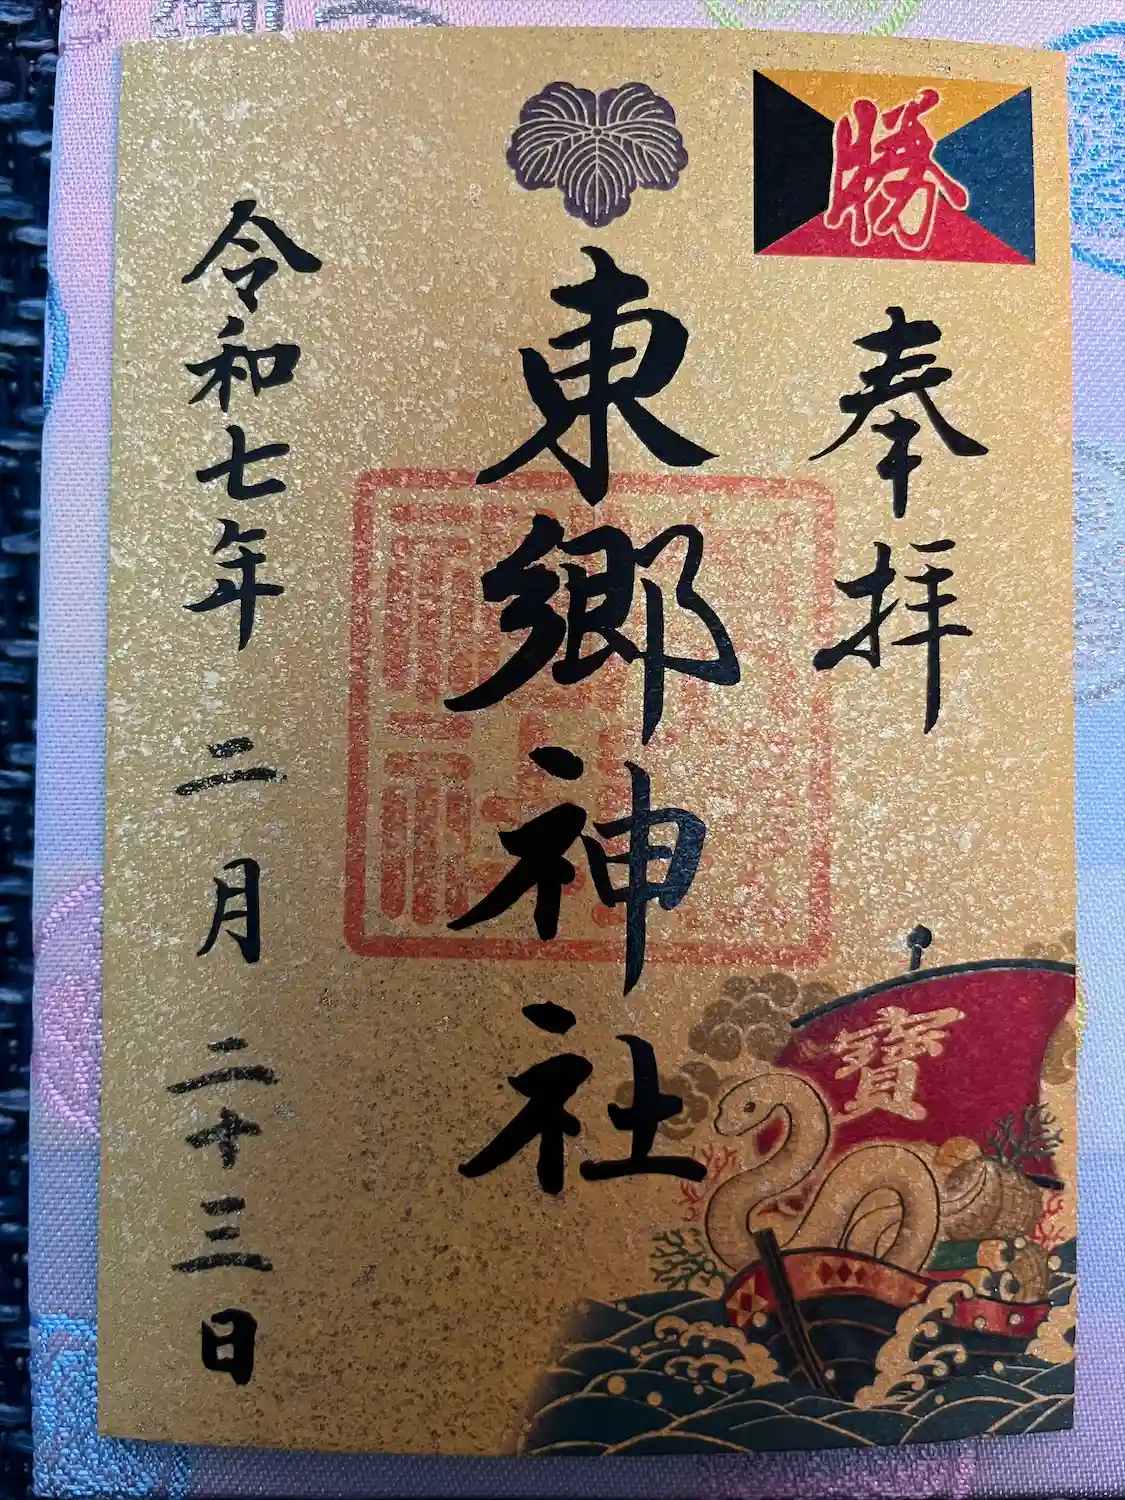 勝
奉拝
東郷神社
令和七年二月二十三日
寶